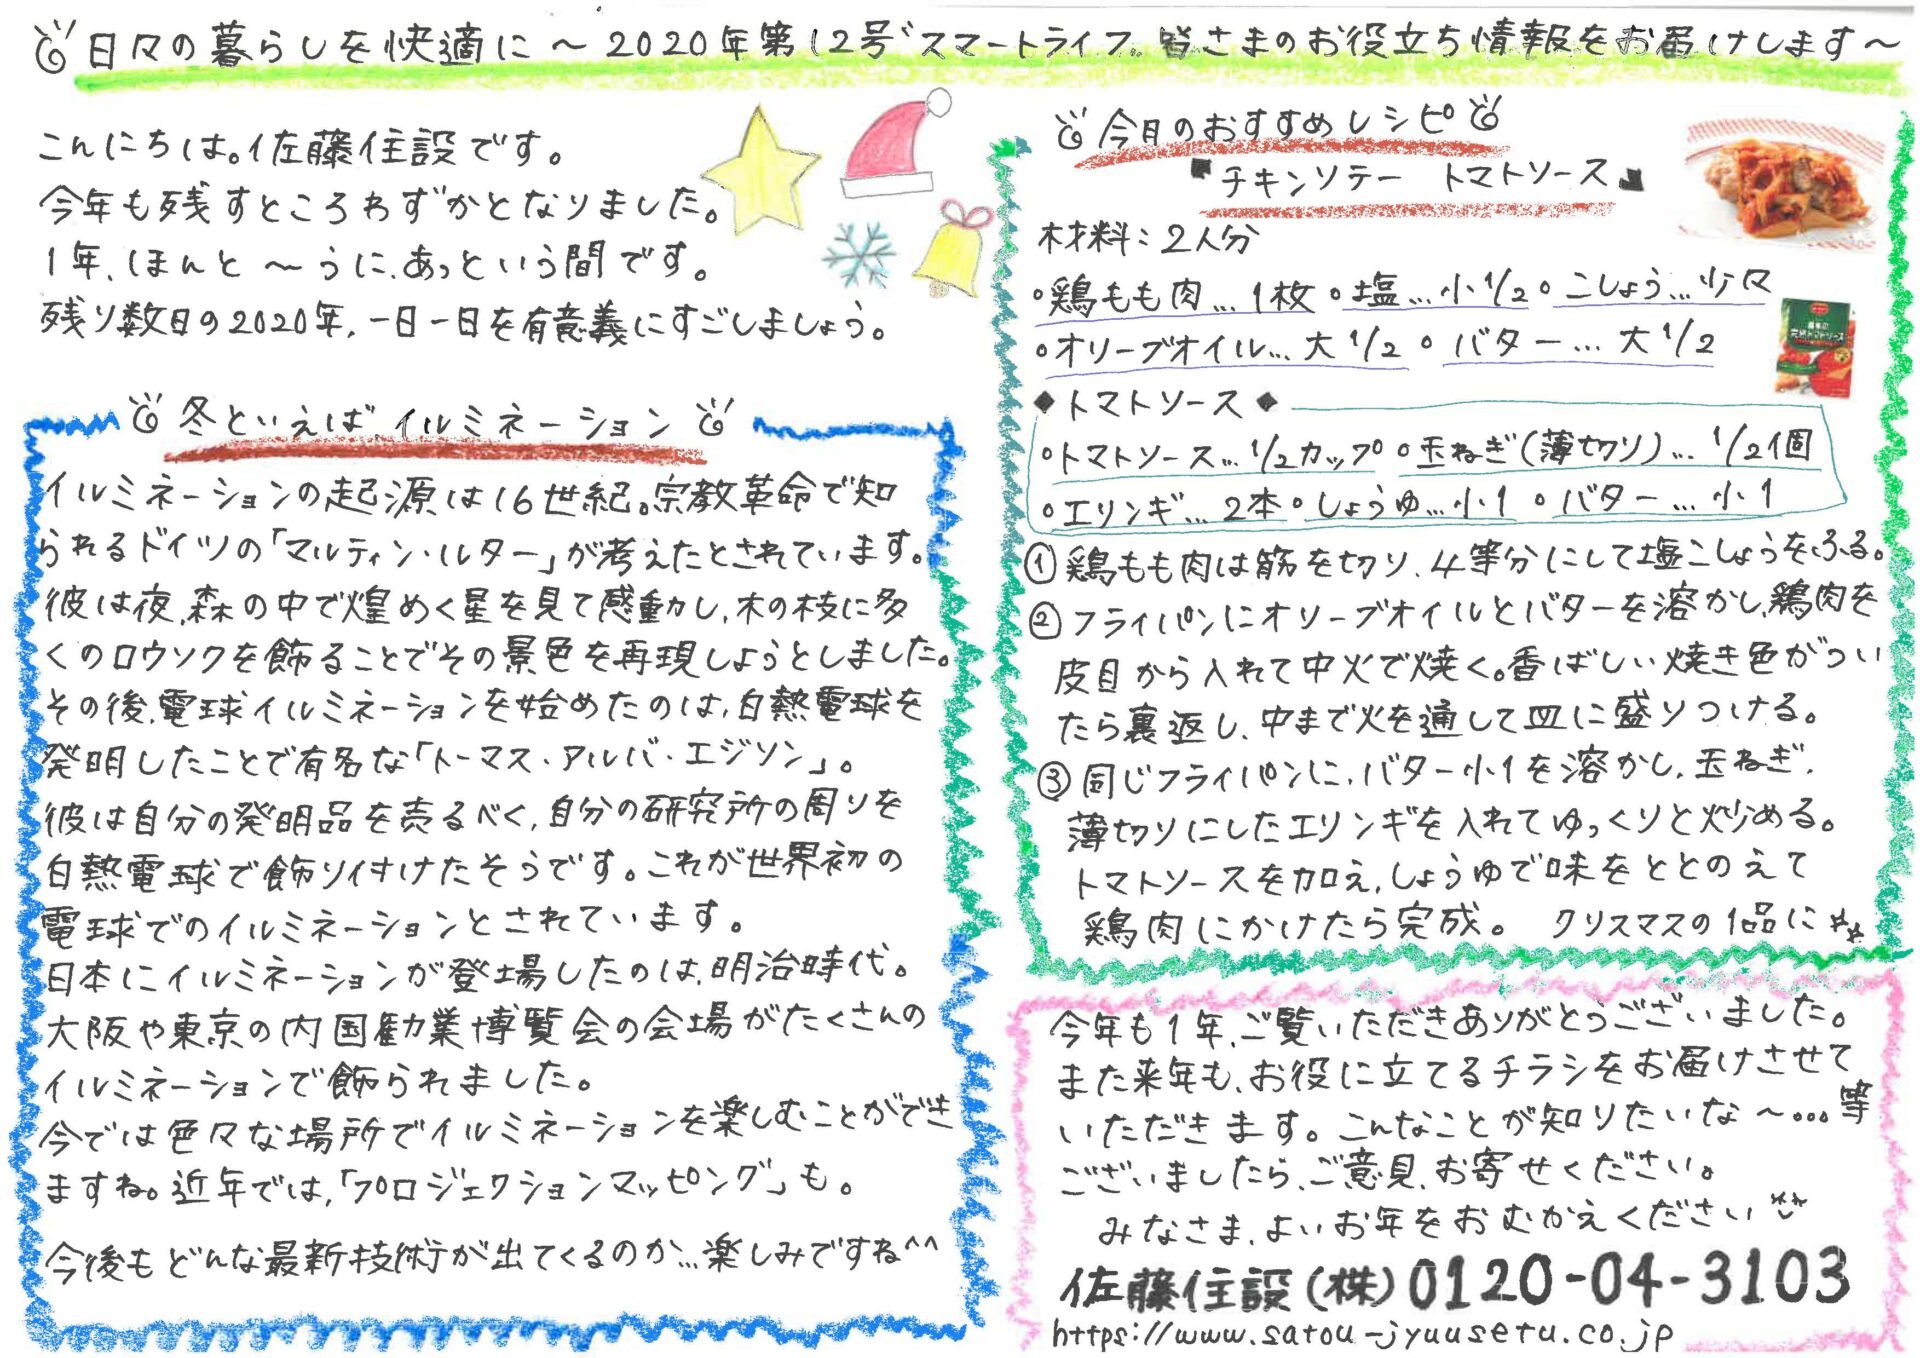 日々の暮らしを快適に～2020年第12号゛スマートライフ。皆さまのお役立ち情報をお届けします～
こんにちは。佐藤住設です。
今年も残すところわずかとなりました。
1年、ほんと～うに、あっという間です。
残り数日の2020年、一日一日を有意義にすごしましょう。
冬といえばイルミネーション
イルミネーションの起源は16世紀。宗教革命で知
られるドイツの「マルティン・ルター」が考えたとされています。
彼は夜、森の中で煌めく星を見て感動し、木の枝に多
くのロウソクを飾ることでその景色を再現しようとしました。
その後、電球イルミネーションを始めたのは、白熱電球を
発明したことで有名な「トーマス・アルバ・エジソン」。
彼は自分の発明品を売るべく、自分の研究所の周りを
白熱電球で飾り付けたそうです。これが世界初の
電球でのイルミネーションとされています。
日本にイルミネーションが登場したのは、明治時代。
大阪や東京の内国勧業博覧会の会場がたくさんの
イルミネーションで飾られました。
今では色々な場所でイルミネーションを楽しむことができ
ますね。近年では、「プロジェクションマッピング」も。
今後もどんな最新技術が出てくるのか…楽しみですね^^
今月のおすすめレシピ
『チキンソテー トマトソース』
材料：2人分
◦鶏もも肉…1枚 ◦塩…小1/2 ◦こしょう…少々
◦オリーブオイル…大1/2 ◦バター…大1/2
◆トマトソース◆
◦トマトソース…1/2カップ ◦玉ねぎ(薄切り)…1/2個
◦エリンギ…2本 ◦しょうゆ…小1 ◦バター…小1
①鶏もも肉は筋を切り、4等分にして塩こしょうをふる。
②フライパンにオリーブオイルとバターを溶かし、鶏肉を
皮目から入れて中火で焼く。香ばしい焼き色がつい
たら裏返し、中まで火を通して皿に盛りつける。
③同じフライパンに、バター小1を溶かし、玉ねぎ、
薄切りにしたエリンギを入れてゆっくりと炒める。
トマトソースを加え、しょうゆで味をととのえて
鶏肉にかけたら完成。 クリスマスの1品に**
今年も1年、ご覧いただきありがとうございました。
また来年も、お役に立てるチラシをお届けさせて
いただきます。こんなことが知りたいな～…等
ございましたら、ご意見、お寄せください。
みなさま、よいお年をおむかえください
佐藤住設(株)0120-04-3103
https://www.satou-jyuusetu.co.jp